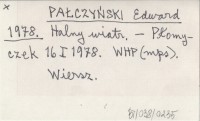 ×
PAŁCZYŃSKI Edward
1978. Halny wiatr. – Płomy-
czek 16 I 1978. WHP (mps).
Wiersz.